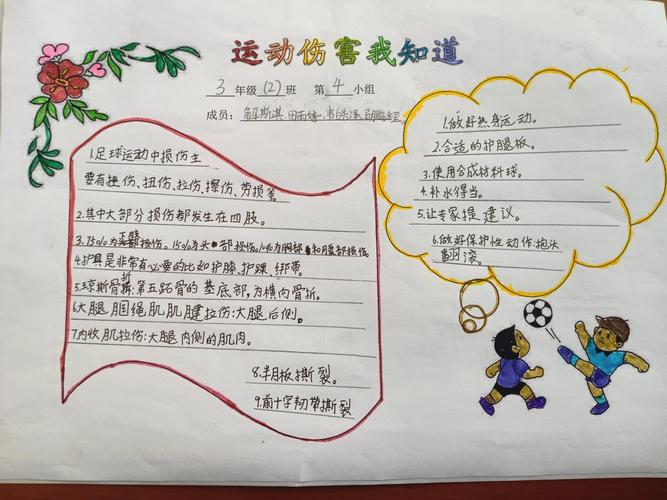 运动伤害我知道
3年级(2)班 第4小组
成员:
1.足球运动中损伤主
要有挫伤、扭伤、拉伤、擦伤、劳损等。
2.其中大部分损伤都发生在四肢。
3.75%为下肢损伤。15%为头部损伤。10%为胸部和腹部损伤。
4.护具是非常有必要的比如护膝、护踝、绑带。
5.琼斯骨折:第五跖骨的基底部,为横向骨折。
6.大腿腘绳肌肌腱拉伤:大腿后侧。
7.内收肌拉伤:大腿内侧的肌肉。
8.半月板撕裂。
9.前十字韧带撕裂
1.做好热身运动。
2.合适的护腿板。
3.使用合成材料球。
4.补水得当。
5.让专家提建议。
6.做好保护性动作:抱头
翻滚。